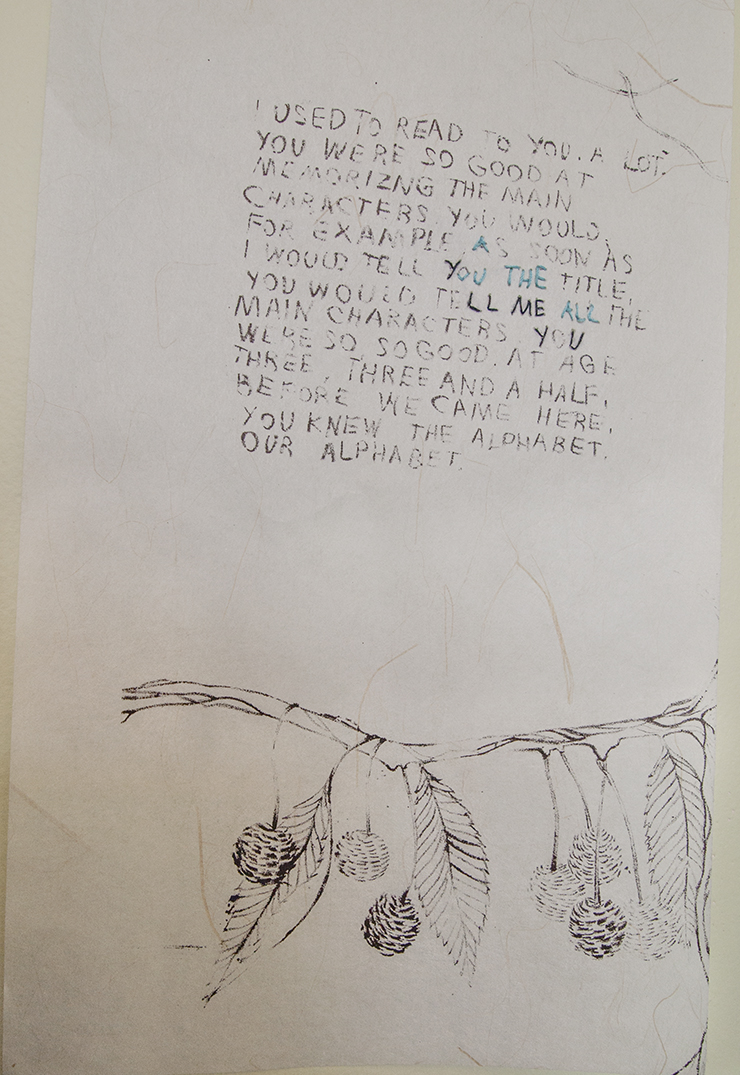 I USED TO READ TO YOU. A LOT.
YOU WERE SO GOOD AT
MEMORIZNG THE MAIN
CHARACTERS. YOU WOULD,
FOR EXAMPLE, AS SOON AS
I WOULD TELL YOU THE TITLE,
YOU WOULD TELL ME ALL THE
MAIN CHARACTERS. YOU
WERE SO, SO GOOD. AT AGE
THREE, THREE AND A HALF,
BEFORE WE CAME HERE,
YOU KNEW THE ALPHABET.
OUR ALPHABET.